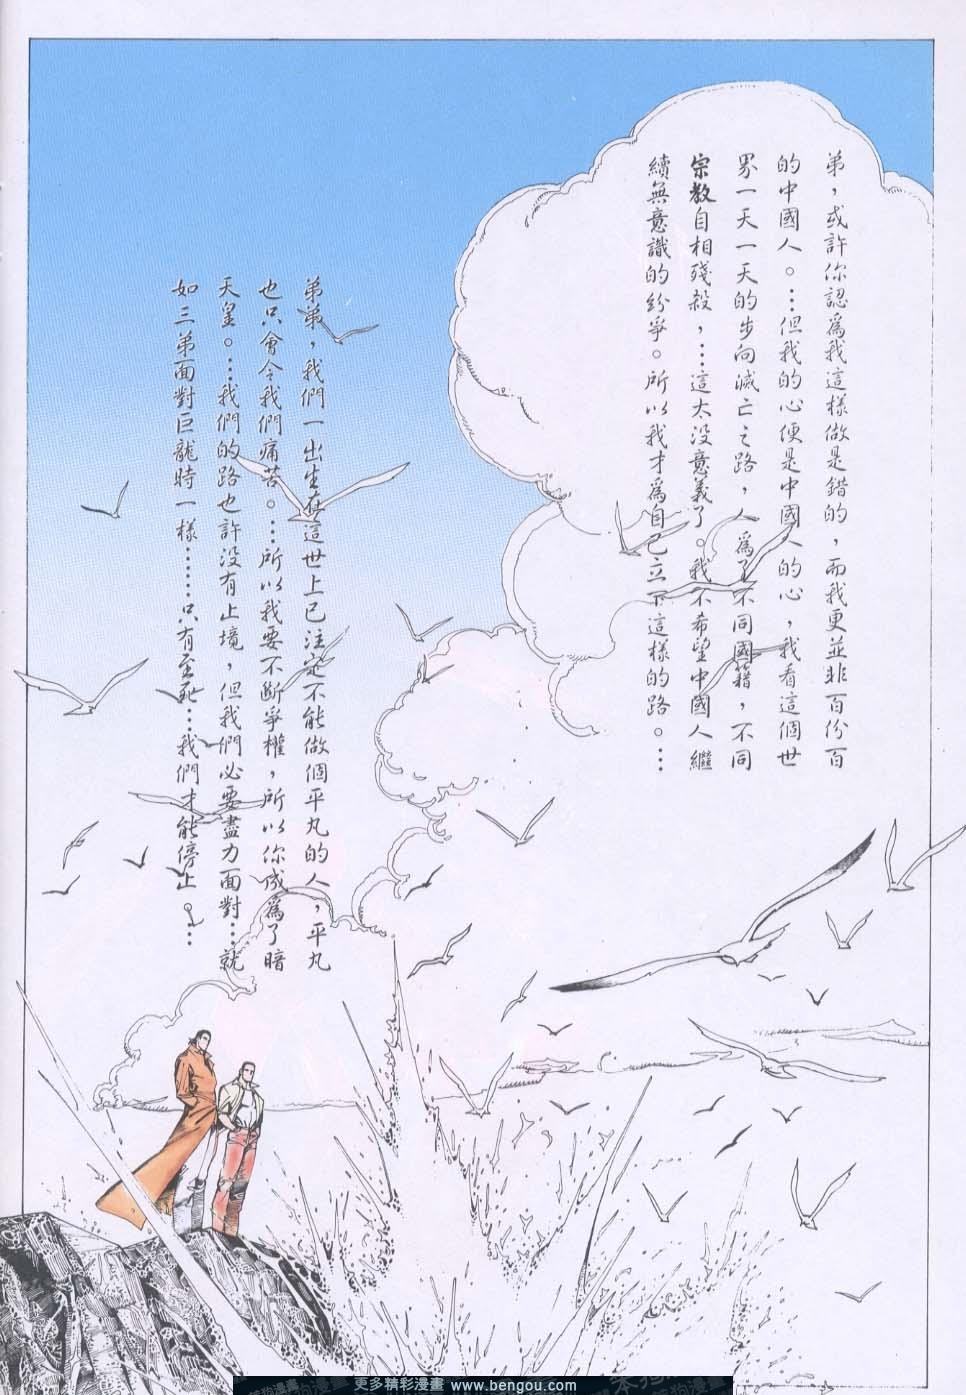 弟，或許你認為我這樣做是錯的，而我更並非百份百
的中國人。…但我的心便是中國人的心，我看這個世
界一天一天的步向滅亡之路，人為了不同國籍，不同
宗教自相殘殺，…這太沒意義了。我不希望中國人繼
續無意識的紛爭。所以我才為自己立下這樣的路。…
弟弟，我們一出生在這世上已注定不能做個平丸的人，平丸
也只會令我們痛苦。…所以我要不斷爭權，所以你成為了暗
天皇。…我們的路也許沒有止境，但我們必要盡力面對…就
如三弟面對巨龍時一樣……只有至死…我們才能停止。…
更多精彩漫畫 www.bengou.com